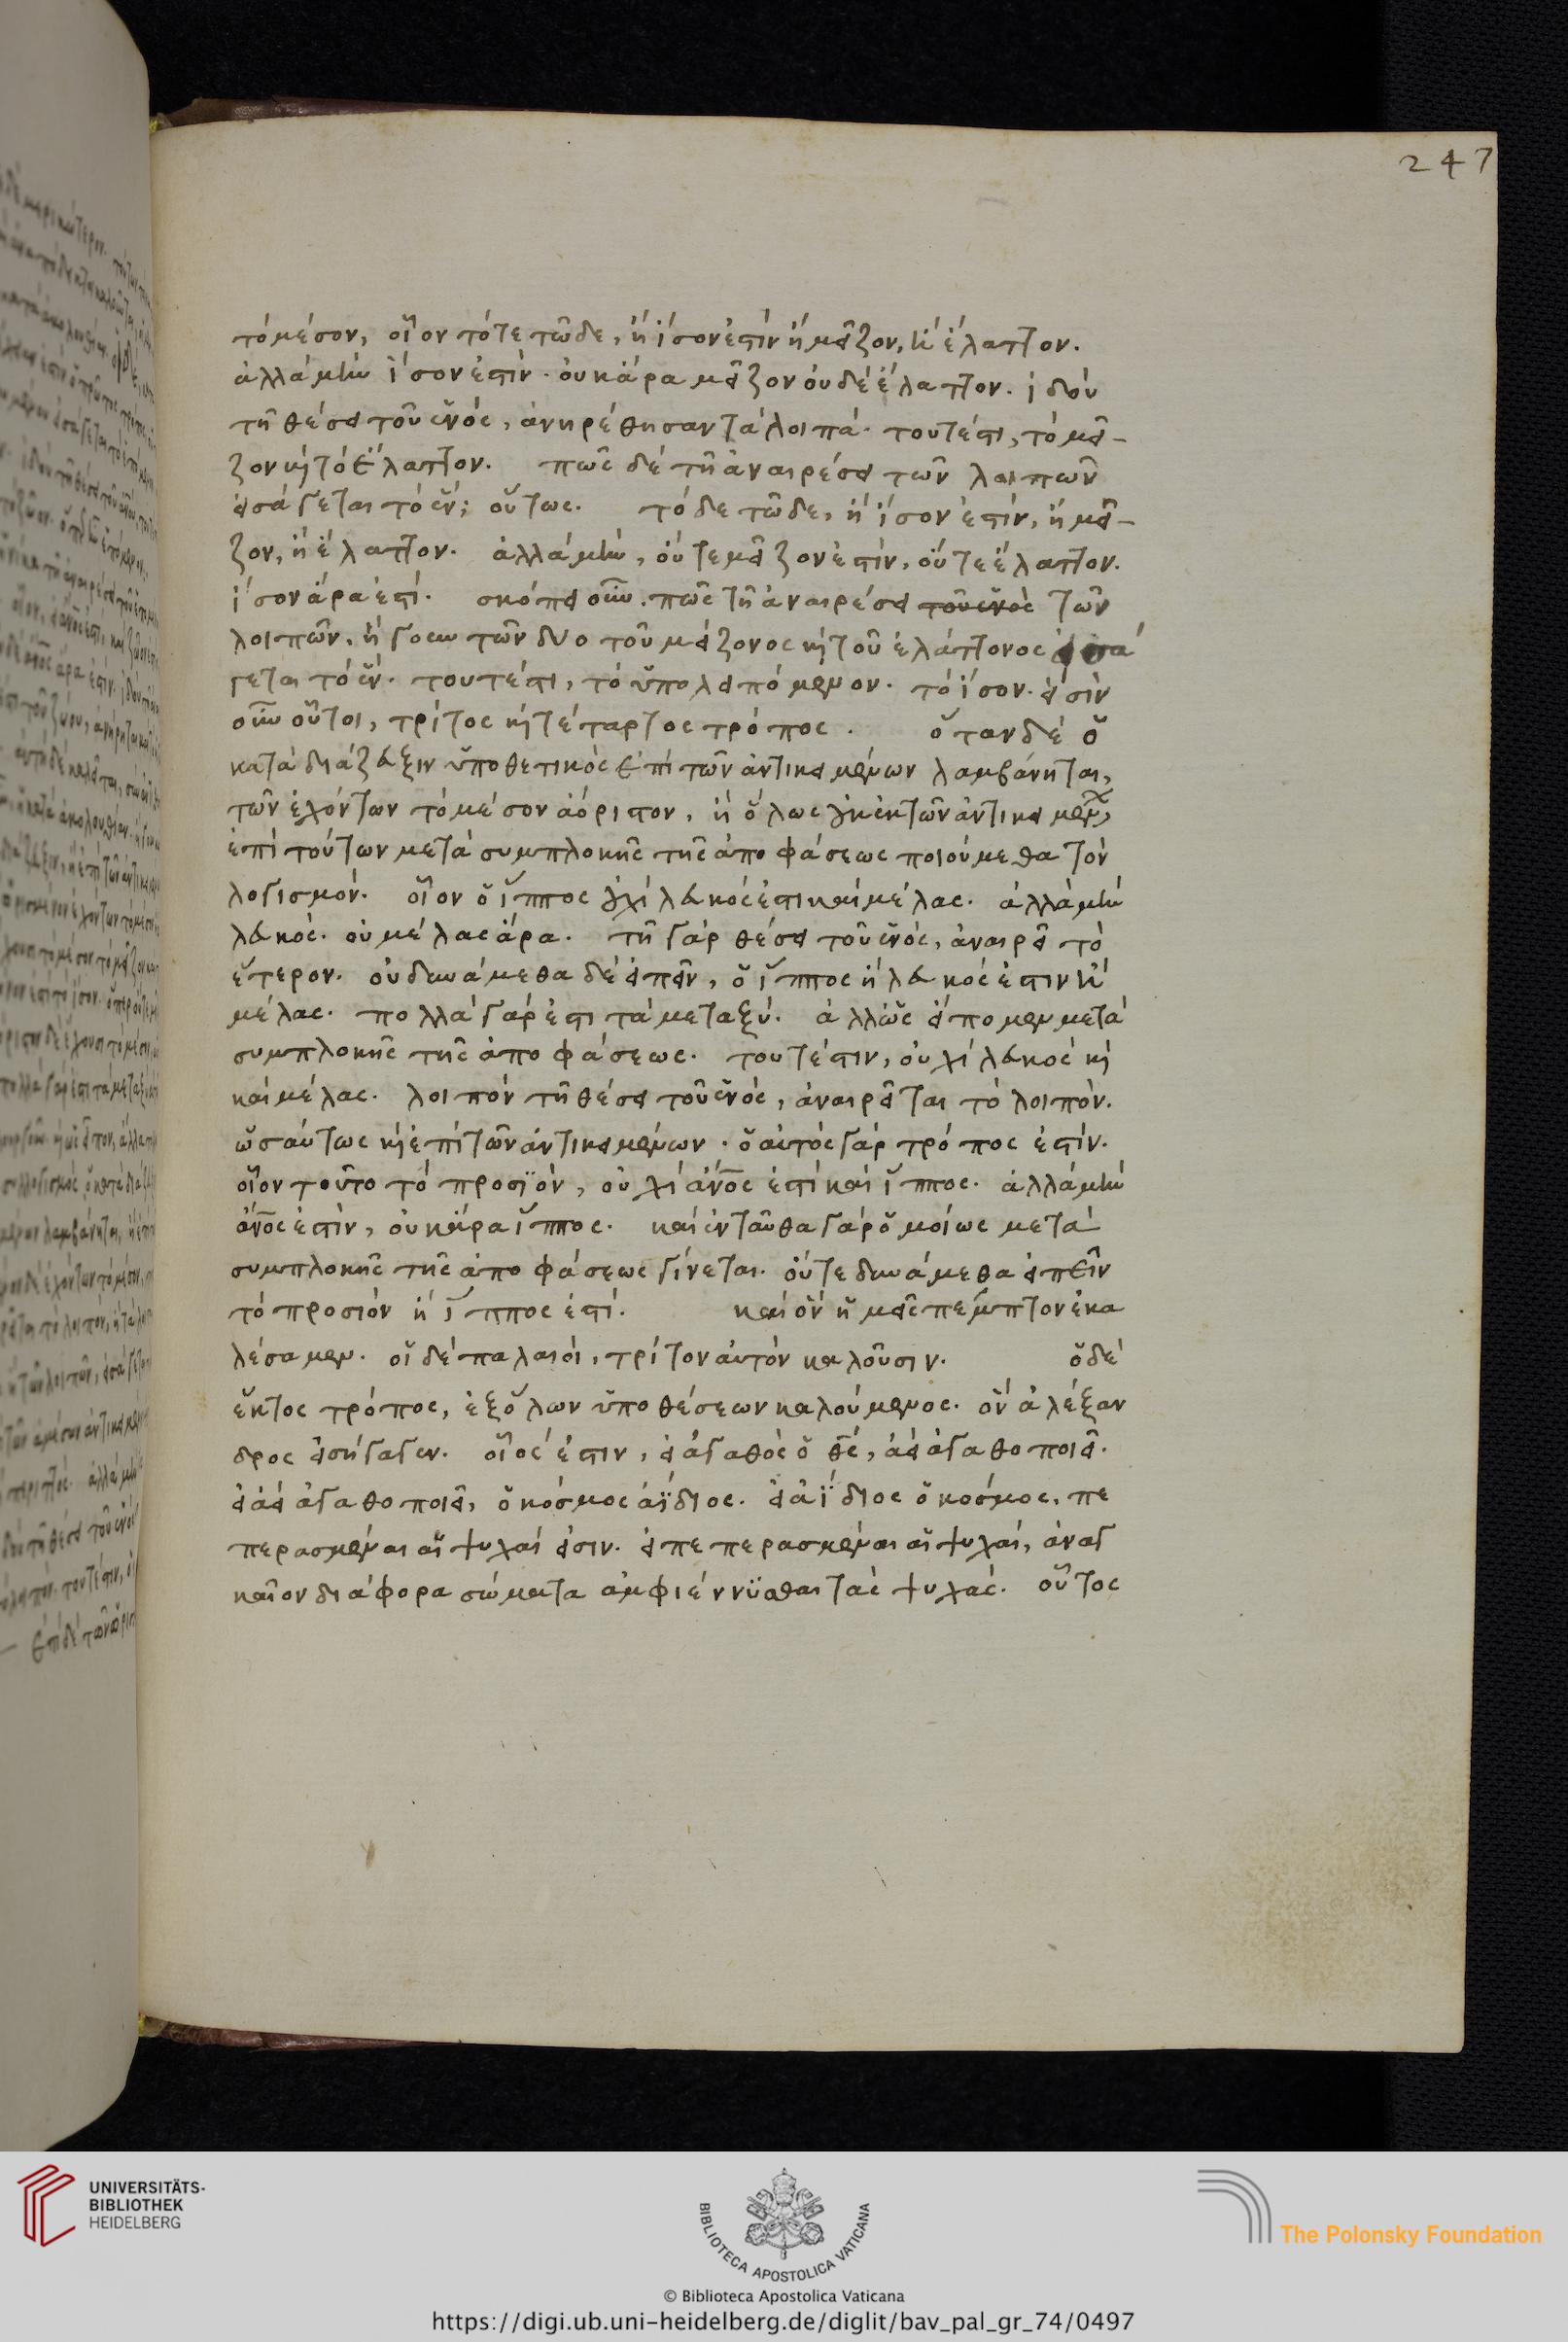 247
τὸ μέσον, οἷον τότε τῶδε, ἢ ἴσον ἐστὶν ἢ μεῖζον, ἢ ἔλαττον.
ἀλλὰ μὴν ἴσον ἐστὶν. οὐκ ἄρα μεῖζον οὐδὲ ἔλαττον. ἰδοὺ
τῇ θέσει τοῦ ἑνὸς, ἀνῃρέθησαν τὰ λοιπά. τουτέστι, τὸ μεῖ-
ζον καὶ τὸ ἔλαττον. πῶς δὲ τῇ ἀναιρέσει τῶν λοιπῶν
εἰσάγεται τὸ ἕν; οὕτως. τόδε τῶδε, ἢ ἴσον ἐστὶν, ἢ μεῖ-
ζον, ἢ ἔλαττον. ἀλλὰ μὴν, οὔτε μεῖζον ἐστὶν, οὔτε ἔλαττον.
ἴσον ἄρα ἐστί. σκόπει οὖν πῶς τῇ ἀναιρέσει τοῦ ἑνὸς τῶν
λοιπῶν, ἤγουν τῶν δύο τοῦ μείζονος καὶ τοῦ ἐλάττονος εἰσά
γεται τὸ ἕν. τουτέστι, τὸ ὑπολειπόμενον. τὸ ἴσον. εἰσὶν
οὖν οὗτοι, τρίτος καὶ τέταρτος τρόπος. ὅταν δὲ ὁ
κατὰ διάζευξιν ὑποθετικὸς ἐπὶ τῶν ἀντικειμένων λαμβάνηται,
τῶν ἐχόντων τὸ μέσον ἀόριστον, ἢ ὅλως οὐκ ἐκ τῶν ἀντικειμένων,
ἐπὶ τούτων μετὰ συμπλοκῆς τῆς ἀποφάσεως ποιούμεθα τὸν
λογισμόν. οἷον ὁ ἵππος οὐχὶ λευκός ἐστι καὶ μέλας. ἀλλὰ μὴν
λευκὸς. οὐ μέλας ἄρα. τῇ γὰρ θέσει τοῦ ἑνὸς, ἀναιρεῖ τὸ
ἕτερον. οὐ δυνάμεθα δὲ εἰπεῖν, ὁ ἵππος ἢ λευκός ἐστιν ἢ
μέλας. πολλὰ γάρ ἐστι τὰ μεταξύ. ἀλλ' ὡς εἴπομεν μετὰ
συμπλοκῆς τῆς ἀποφάσεως. τουτέστιν, οὐχὶ λευκὸς καὶ
καὶ μέλας. λοιπὸν τῇ θέσει τοῦ ἑνὸς, ἀναιρεῖται τὸ λοιπὸν.
ὡσαύτως καὶ ἐπὶ τῶν ἀντικειμένων. ὁ αὐτὸς γὰρ τρόπος ἐστίν.
οἷον τοῦτο τὸ προσϊὸν, οὐχὶ ἄνος ἐστὶ καὶ ἵππος. ἀλλὰ μὴν
ἄνος ἐστὶν, οὐκ ἄρα ἵππος. καὶ ἐνταῦθα γὰρ ὁμοίως μετὰ
συμπλοκῆς τῆς ἀποφάσεως γίνεται. οὔτε δυνάμεθα εἰπεῖν
τὸ προσιὸν ἢ ἵππος ἐστί. καὶ ὃν ἡμεῖς πέμπτον ἐκα
λέσαμεν. οἱ δὲ παλαιοὶ, τρίτον αὐτὸν καλοῦσιν. ὁ δὲ
ἕκτος τρόπος, ἐξ ὅλων ὑποθέσεων καλούμενος. ὃν ἀλέξαν
δρος εἰσήγαγεν. οἷός ἐστιν, εἰ ἀγαθὸς ὁ θς, ἀεὶ ἀγαθοποιεῖ.
εἰ ἀεὶ ἀγαθοποιεῖ, ὁ κόσμος ἀΐδιος. εἰ ἀΐδιος ὁ κόσμος, πε
περασμέναι αἱ ψυχαὶ εἰσιν. εἰ πεπερασμέναι αἱ ψυχαί, ἀναγ
καῖον διάφορα σώματα ἀμφιέννϋσθαι τὰς ψυχάς. οὗτος
UNIVERSITÄTS-
BIBLIOTHEK
HEIDELBERG
BIBLIOTECA APOSTOLICA VATICANA
The Polonsky Foundation
© Biblioteca Apostolica Vaticana
https://digi.ub.uni-heidelberg.de/diglit/bav_pal_gr_74/0497